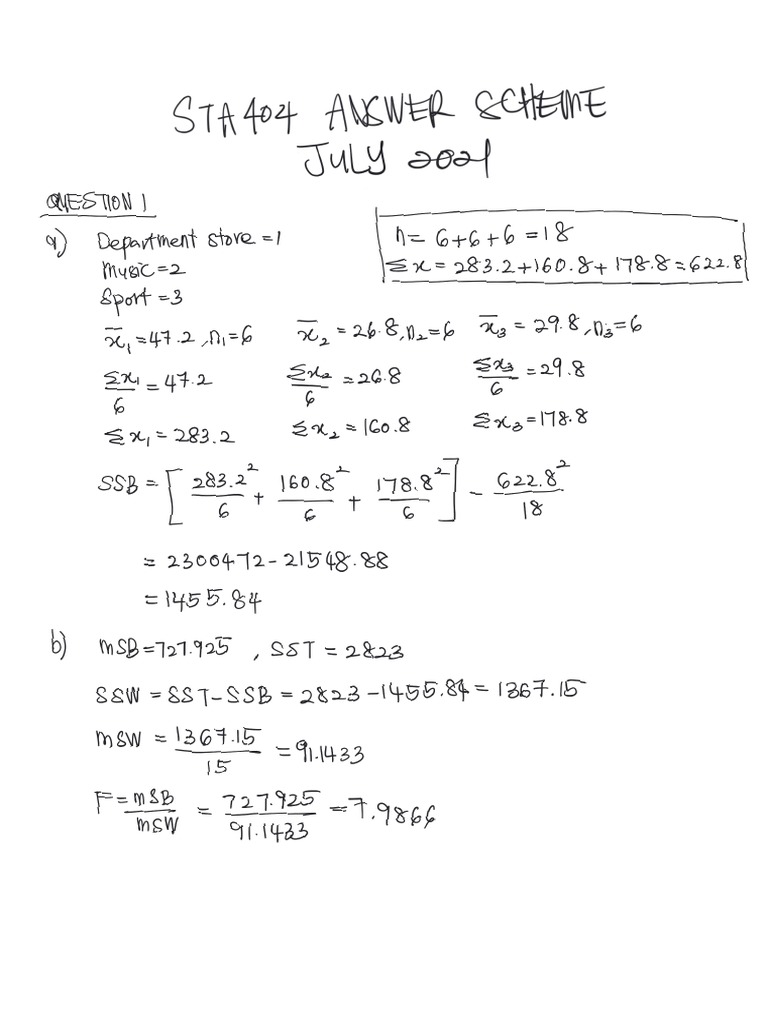 STA404 ANSWER SCHEME
JULY 2021
QUESTION 1
a) Department store =1
Music =2
Sport =3
n= 6+6+6 =18
Σx = 283.2+160.8+178.8=622.8
x̄₁=47.2, n₁=6   x̄₂ = 26.8, n₂=6   x̄₃ = 29.8, n₃=6
Σx₁/6 = 47.2   Σx₂/6 = 26.8   Σx₃/6 = 29.8
Σx₁ = 283.2   Σx₂ = 160.8   Σx₃ = 178.8
SSB = [283.2²/6 + 160.8²/6 + 178.8²/6] - 622.8²/18
= 2300472 - 21548.88
= 1455.84
b) MSB=727.925 , SST = 2823
SSW = SST-SSB = 2823-1455.84= 1367.15
MSW = 1367.15/15 = 91.1433
F = MSB/MSW = 727.925/91.1433 = 7.9866